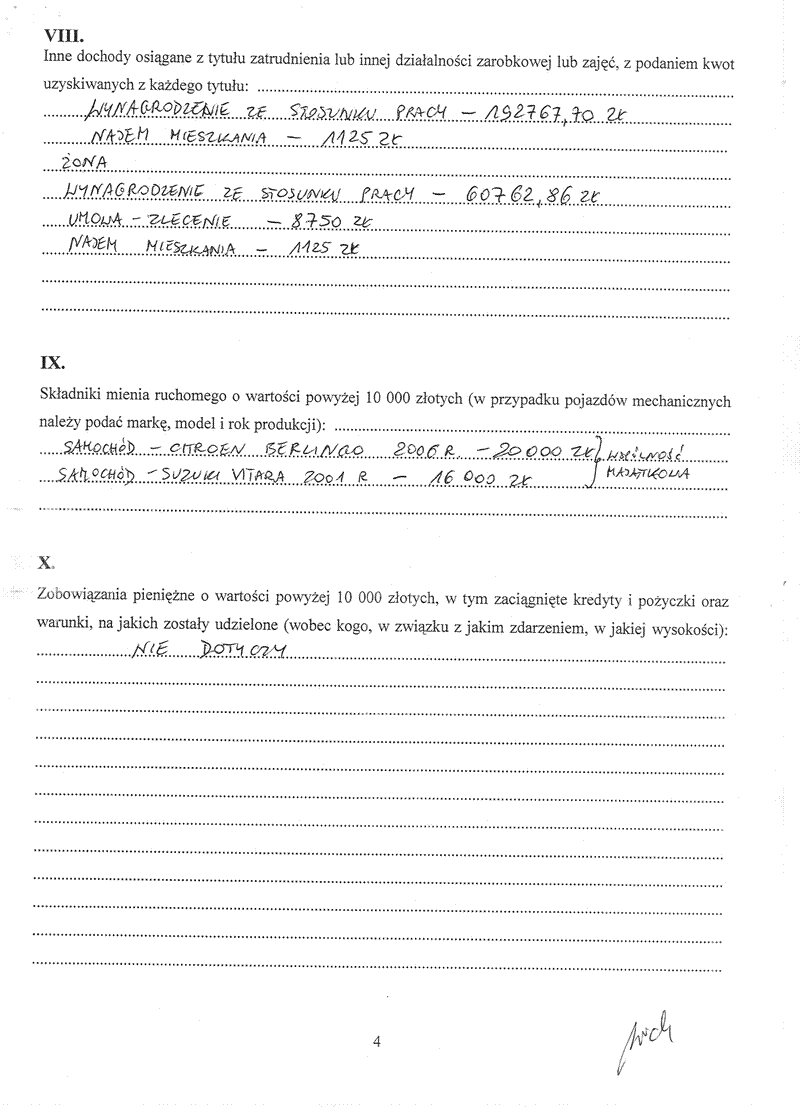 VIII.
Inne dochody osiągane z tytułu zatrudnienia lub innej działalności zarobkowej lub zajęć, z podaniem kwot
uzyskiwanych z każdego tytułu:
WYNAGRODZENIE ZE STOSUNKU PRACY – 192767,70 ZŁ
NAJEM MIESZKANIA – 1125 ZŁ
ŻONA
WYNAGRODZENIE ZE STOSUNKU PRACY – 60762,86 ZŁ
UMOWA – ZLECENIE – 8750 ZŁ
NAJEM MIESZKANIA – 1125 ZŁ
IX.
Składniki mienia ruchomego o wartości powyżej 10 000 złotych (w przypadku pojazdów mechanicznych
należy podać markę, model i rok produkcji):
SAMOCHÓD – CITROEN BERLINGO 2006 R – 20 000 ZŁ } WSPÓLNOŚĆ
SAMOCHÓD – SUZUKI VITARA 2001 R – 16 000 ZŁ } MAJĄTKOWA
X.
Zobowiązania pieniężne o wartości powyżej 10 000 złotych, w tym zaciągnięte kredyty i pożyczki oraz
warunki, na jakich zostały udzielone (wobec kogo, w związku z jakim zdarzeniem, w jakiej wysokości):
NIE DOTYCZY
4